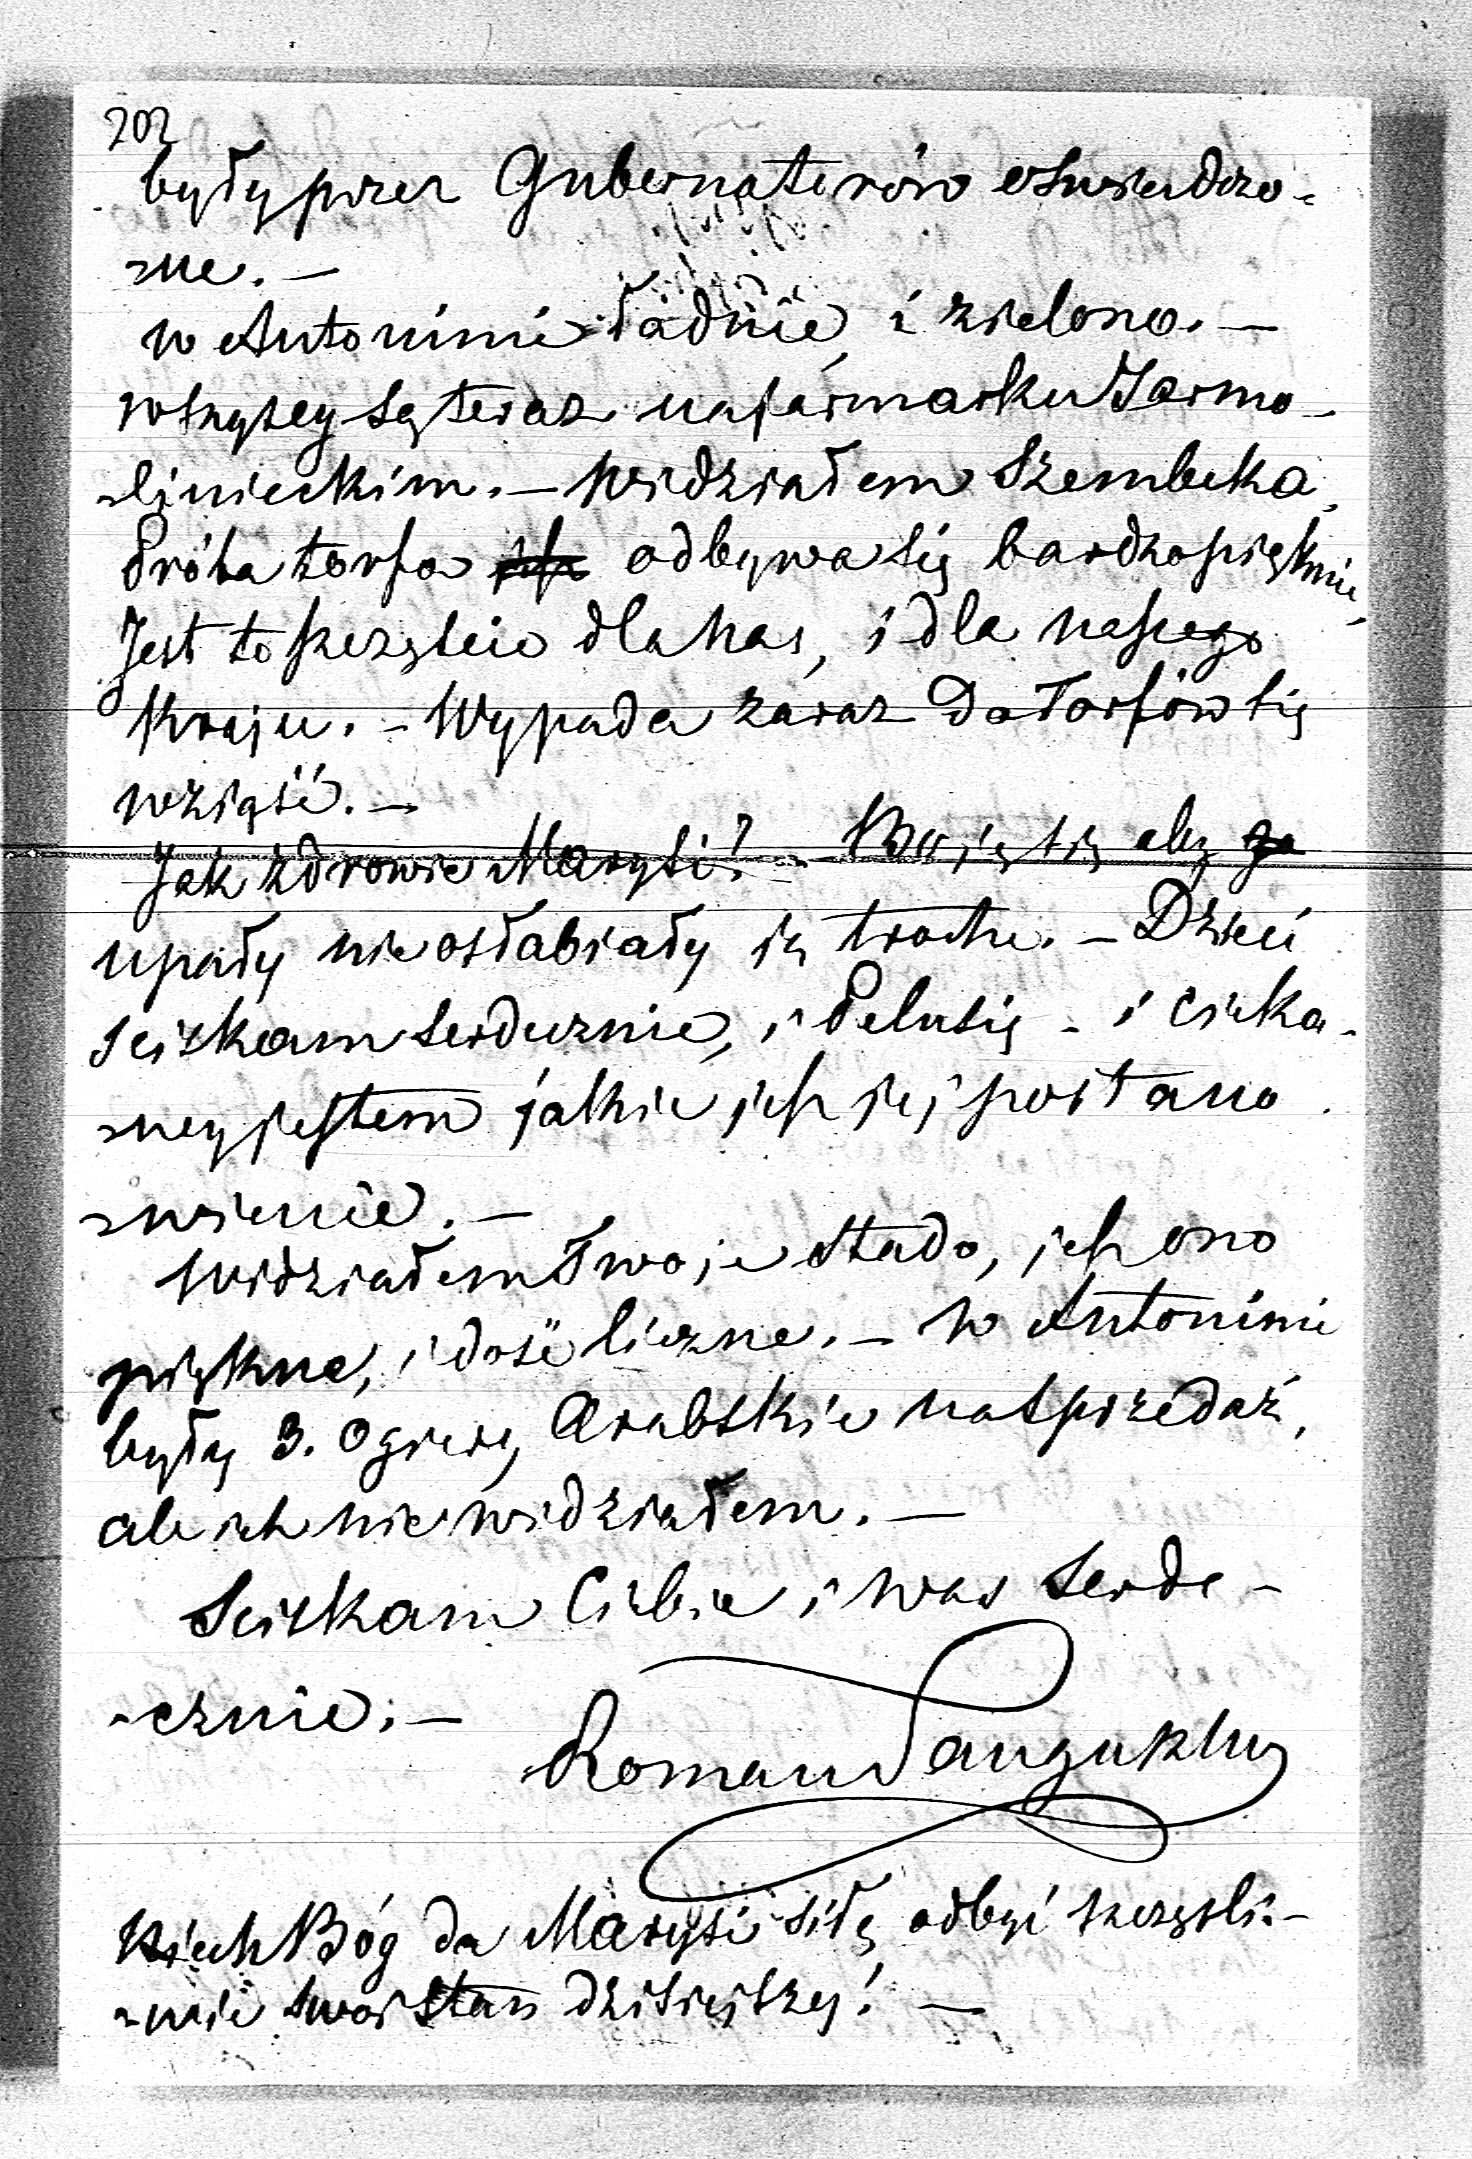 202
były przez Gubernatorów oswiadczo-
-ne. —
w Antoninie ładnie, i zielono. —
wszyscy są teraz na jarmarku Jarmo-
-linieckim. — Widziałem Szembeka,
Próba torfa odbywa się bardzo pięknie,
Jest to szczęście dla nas, i dla naszego
Kraju. — Wypada zaraz do Torfów się
wziąść. —
Jak zdrowie Marysi? — Boję się aby
upały nie osłabiały ją trochę. — Dzieci
sciskam serdecznie, i Pelusię - i cieka-
-wy jestem jakie jest jej postano-
-wienie. —
Widziałem Twoje Stado, jest ono
piękne, i dość liczne. — W Antoninie
były 3. Ogiery Arabskie na sprzedaż,
ale ich nie widziałem. —
Sciskam Ciebie i was serde-
-cznie. —
Roman Sanguszko
Niech Bóg da Marysi siłę odbyć szczęśli-
-wie swój stan dzisiejszy! —